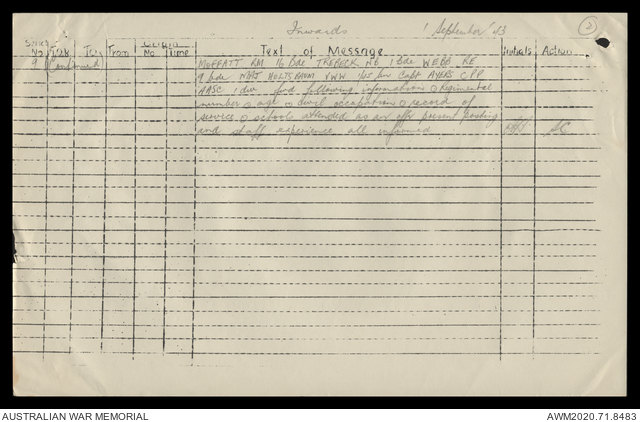 Inwards 1 September '43 2
Series No Title To From Origin No Time Text of Message Initials Action
9 Continued MOFFATT RM 16 Bde TREBECK NB 1 Bde WEBB RE
9 bde HOLTSBAUM VWW Capt AYERS CPP
AASC 1 div for following information o Regimental
number o age o civil occupation o record of
service o schools attended as an offr present posting
and staff experience all informed SC
AUSTRALIAN WAR MEMORIAL AWM2020.71.8483